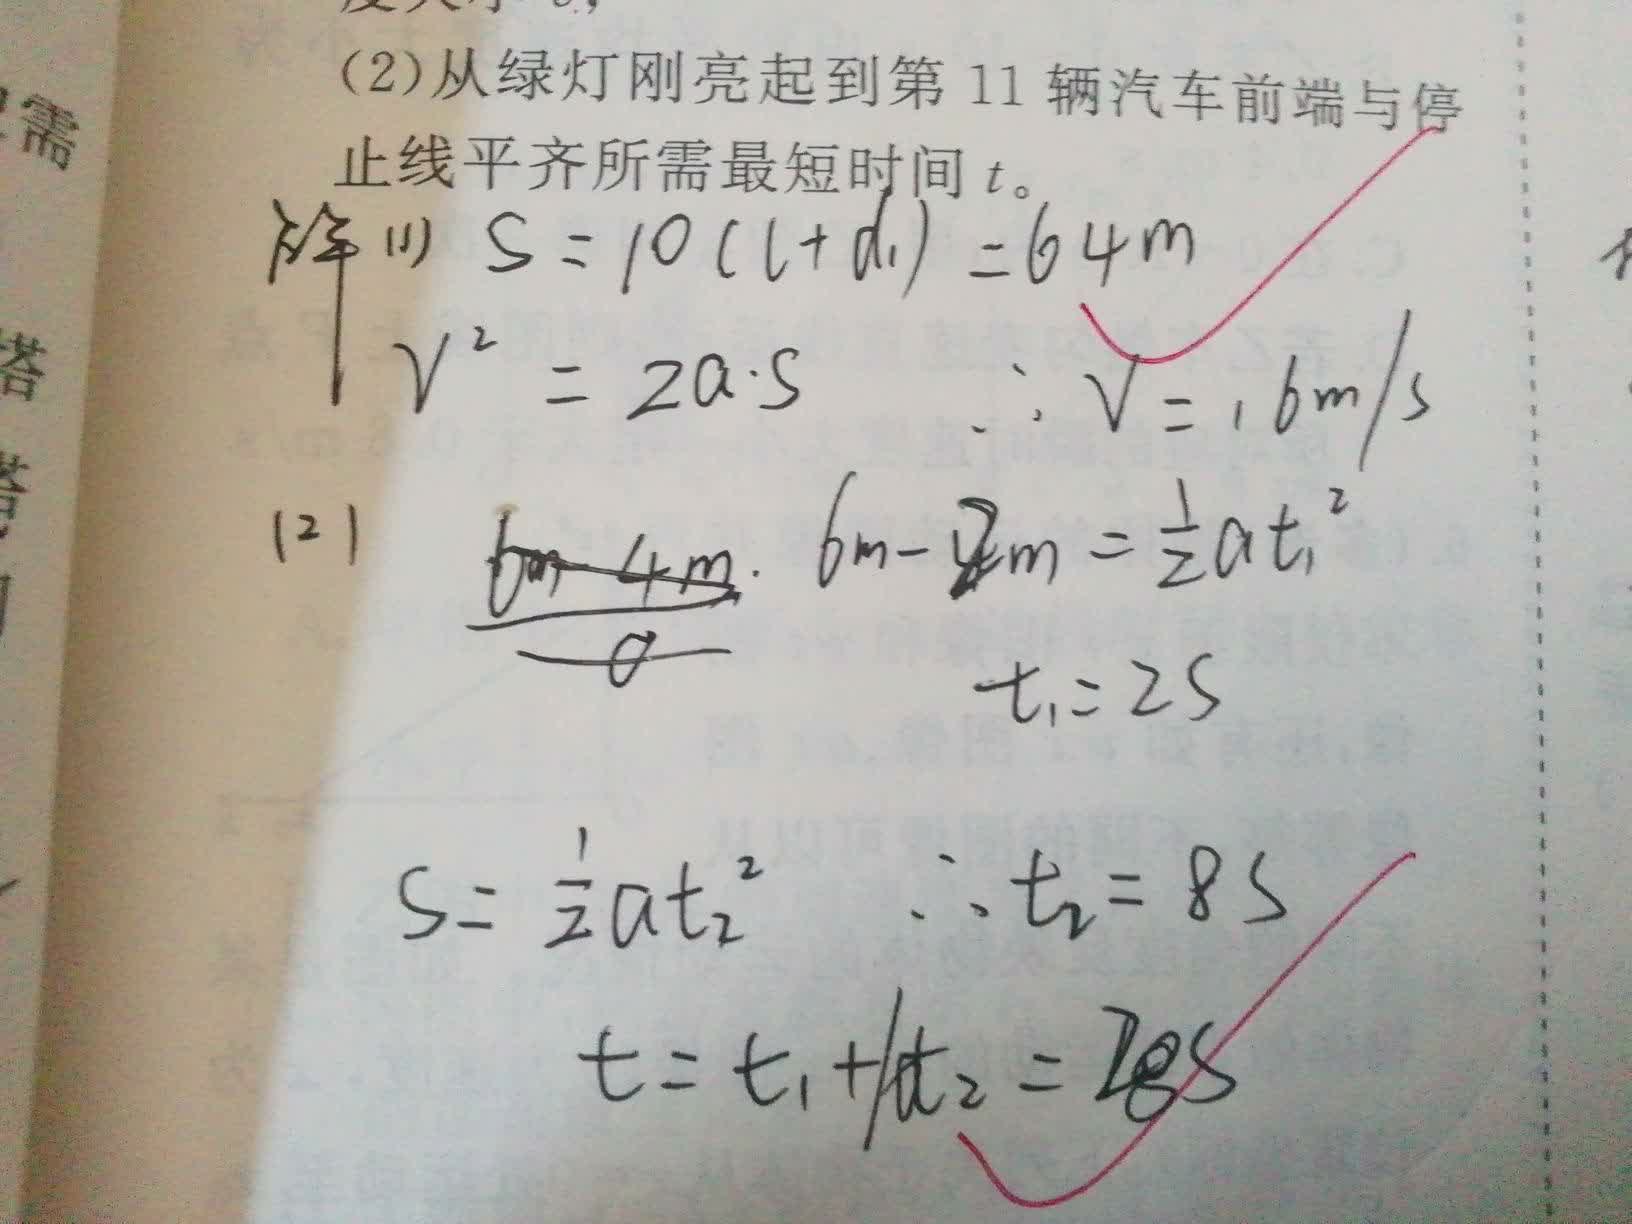 (2)从绿灯刚亮起到第 11 辆汽车前端与停
止线平齐所需最短时间 t。
解 (1) S = 10(l+d₁) = 64m
V² = 2a·S ∴ V = 16m/s
(2) 6m-4m. 6m-2m = ½at₁²
a
t₁=2S
S= ½at₂² ∴ t₂= 8S
t= t₁+ t₂ =
需
塔